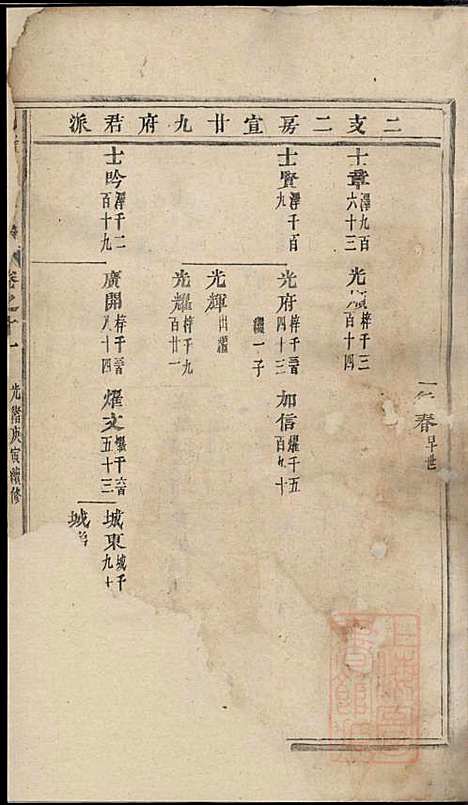 二支二房宣廿九府君派
士章 澤九百六十三
光 梓千三百十四
春 早世
士賢 澤千百九
光府 梓千晉四十三 繼一子
加信 燿千五百九十
光輝 出繼
光燿 梓千九百廿一
士吟 澤千二百十九
廣開 梓千晉八十四
燿文 燿千六百五十三
城東 城千九十
城
卷之十一
光緒庚寅續修